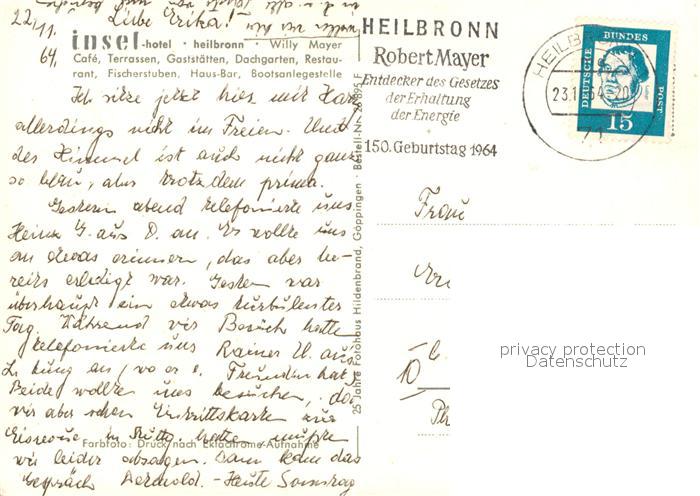 22.
11.
64.
Liebe Erika!
insel-hotel · heilbronn · Willy Mayer
Café, Terrassen, Gaststätten, Dachgarten, Restau-
rant, Fischerstuben, Haus-Bar, Bootsanlegestelle
Ich sitze jetzt hier mit
allerdings nicht im Freien. Und
der Himmel ist auch nicht ganz
so blau, aber trotzdem prima.
Gestern abend telefonierte uns
Heinz G. aus D. an. Er wollte uns
an etwas erinnern, das aber be-
reits erledigt war. Gestern war
überhaupt ein etwas turbulenter
Tag. Während wir Besuch hatten
telefonierte uns Rainer U. aus
an, wo er s. Freundin hat.
Beide wollten uns besuchen, da
wir aber schon Eintrittskarten zur
Eisrevue in Stuttg. hatten, mußten
Farbfoto: Druck nach Ektachrome-Aufnahme
wir leider absagen. Dann kam das
Gespräch Detmold. - Heute Sonntag
25 Jahre Fotohaus Hildenbrand, Göppingen · Bestell-Nr. 26 895 F
HEILBRONN
Robert Mayer
Entdecker des Gesetzes
der Erhaltung
der Energie
150. Geburtstag 1964
HEILBRONN
23.11.64-20
71
DEUTSCHE BUNDES POST
15
Frau
10
privacy protection
Datenschutz